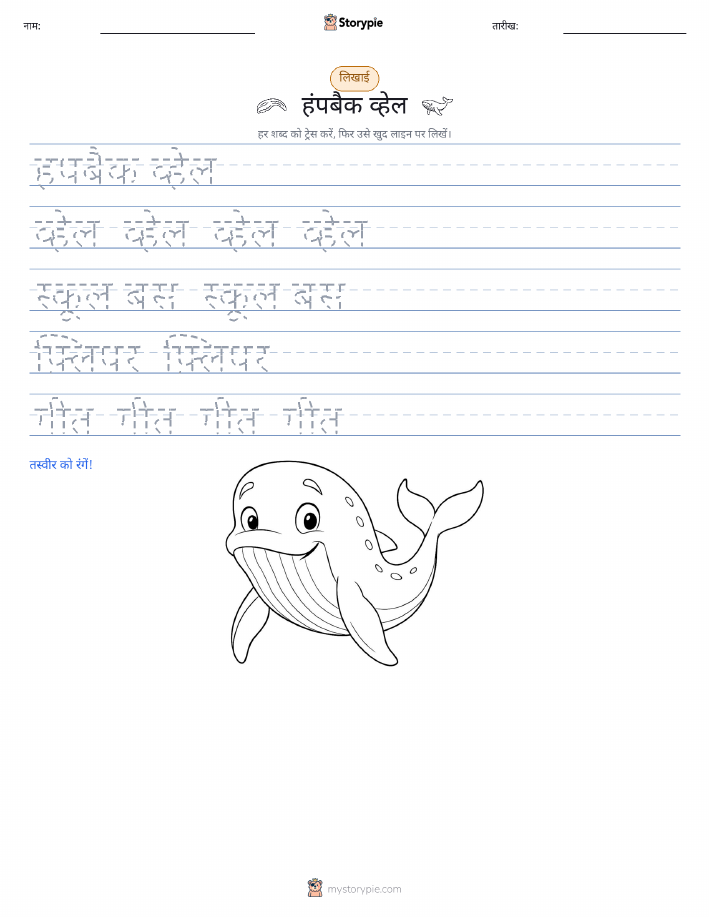 नाम:
Storypie
तारीख:
लिखाई
हंपबैक व्हेल
हर शब्द को ट्रेस करें, फिर उसे खुद लाइन पर लिखें।
हपबैक व्हेल
व्हेल व्हेल व्हेल व्हेल
स्कूल बस स्कूल बस
फ्लिपर फ्लिपर
गीत गीत गीत गीत
तस्वीर को रंगें!
mystorypie.com